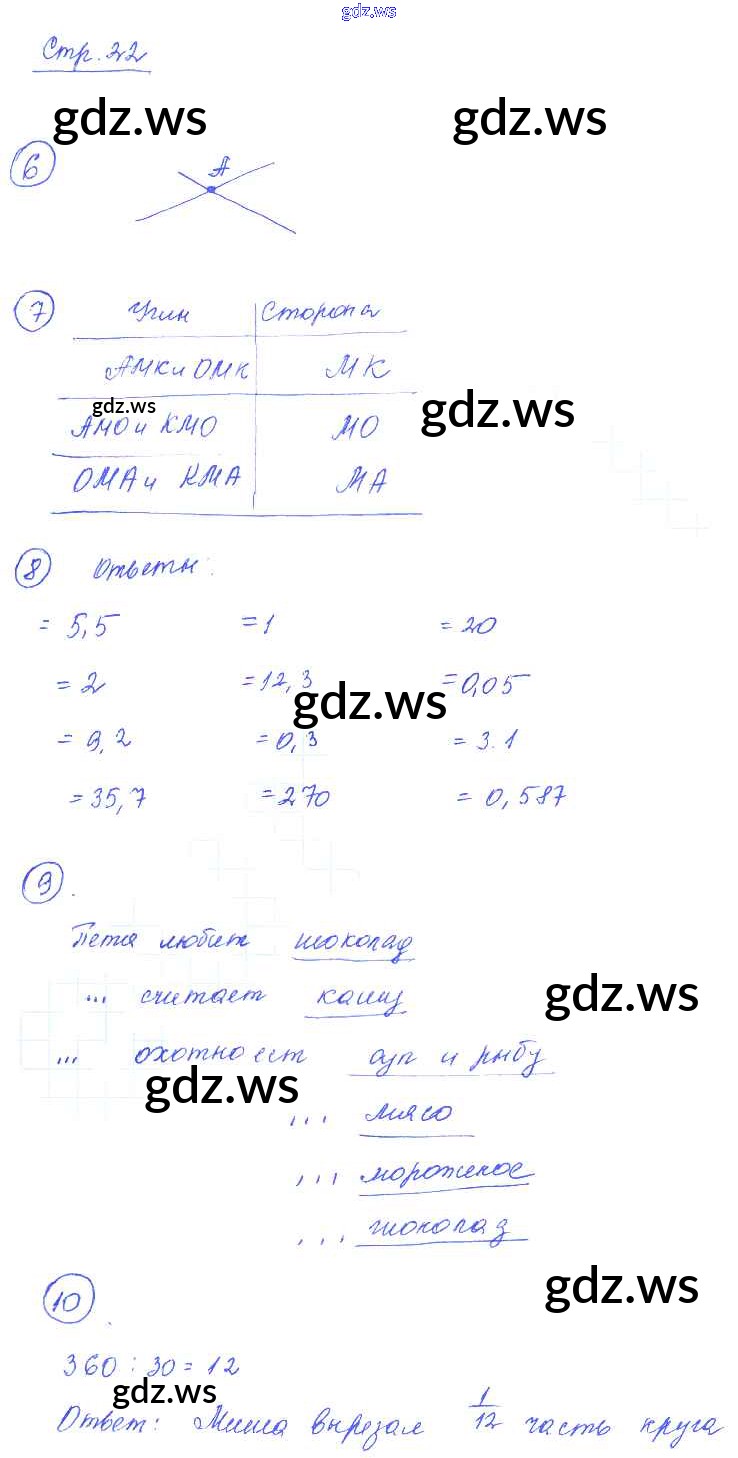 gdz.ws
Стр. 22
gdz.ws gdz.ws
6 А
7 Угли Сторона
АМК и ОМК МК
gdz.ws gdz.ws
АМО и КМО МО
ОМА и КМА МА
8 Ответы:
= 5,5 = 1 = 20
= 2 = 12,3 = 0,05
gdz.ws
= 9,2 = 0,3 = 3.1
= 35,7 = 270 = 0,587
9.
Петя любит шоколад
... считает кашу
gdz.ws
... охотно ест суп и рыбу
gdz.ws
... мясо
... мороженое
... шоколад
gdz.ws
10.
360 : 30 = 12
gdz.ws
Ответ: Миша вырезал 1/12 часть круга